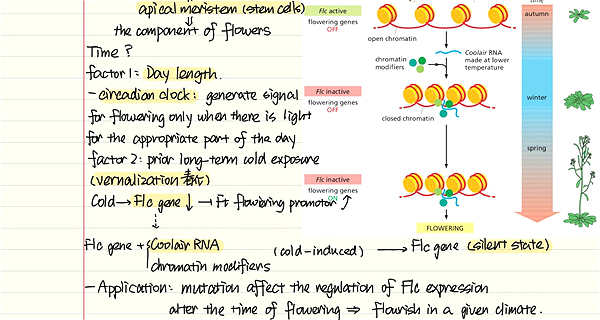 apical meristem (stem cells)
the component of flowers
Time ?
factor 1: Day length.
- circadian clock: generate signal
for flowering only when there is light
for the appropriate part of the day
factor 2: prior long-term cold exposure
(vernalization 春化)
Cold → Flc gene ↓ ⊣ Ft flowering promotor ↑
Flc gene + Coolair RNA
chromatin modifiers
(cold-induced) → Flc gene (silent state)
- Application: mutation affect the regulation of Flc expression
alter the time of flowering ⇒ flourish in a given climate.
Flc active
flowering genes
OFF
open chromatin
chromatin
modifiers
Coolair RNA
made at lower
temperature
Flc inactive
flowering genes
OFF
closed chromatin
Flc inactive
flowering genes
ON
FLOWERING
time
autumn
winter
spring